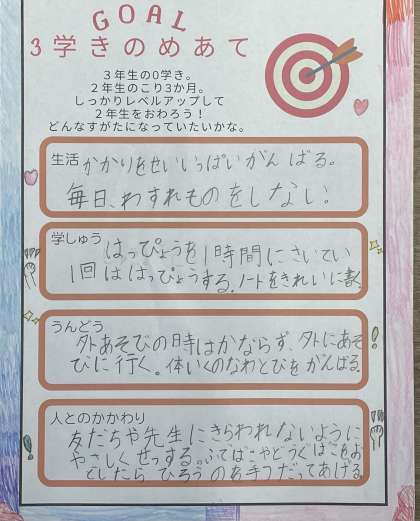 GOAL
3学きのめあて
3年生の0学き。
2年生のこり3か月。
しっかりレベルアップして
2年生をおわろう！
どんなすがたになっていたいかな。
生活 かかりをせいいっぱいがんばる。
毎日、わすれものをしない。
学しゅう
はっぴょうを1時間にさいてい
1回ははっぴょうする。ノートをきれいに書く
うんどう
外あそびの時はかならず、外にあそ
びに行く。体いくのなわとびをがんばる。
人とのかかわり
友だちや先生にきらわれないように
やさしくせっする。ふではこやどうぐはこをお
としたらひろうのお手つだってあげる。